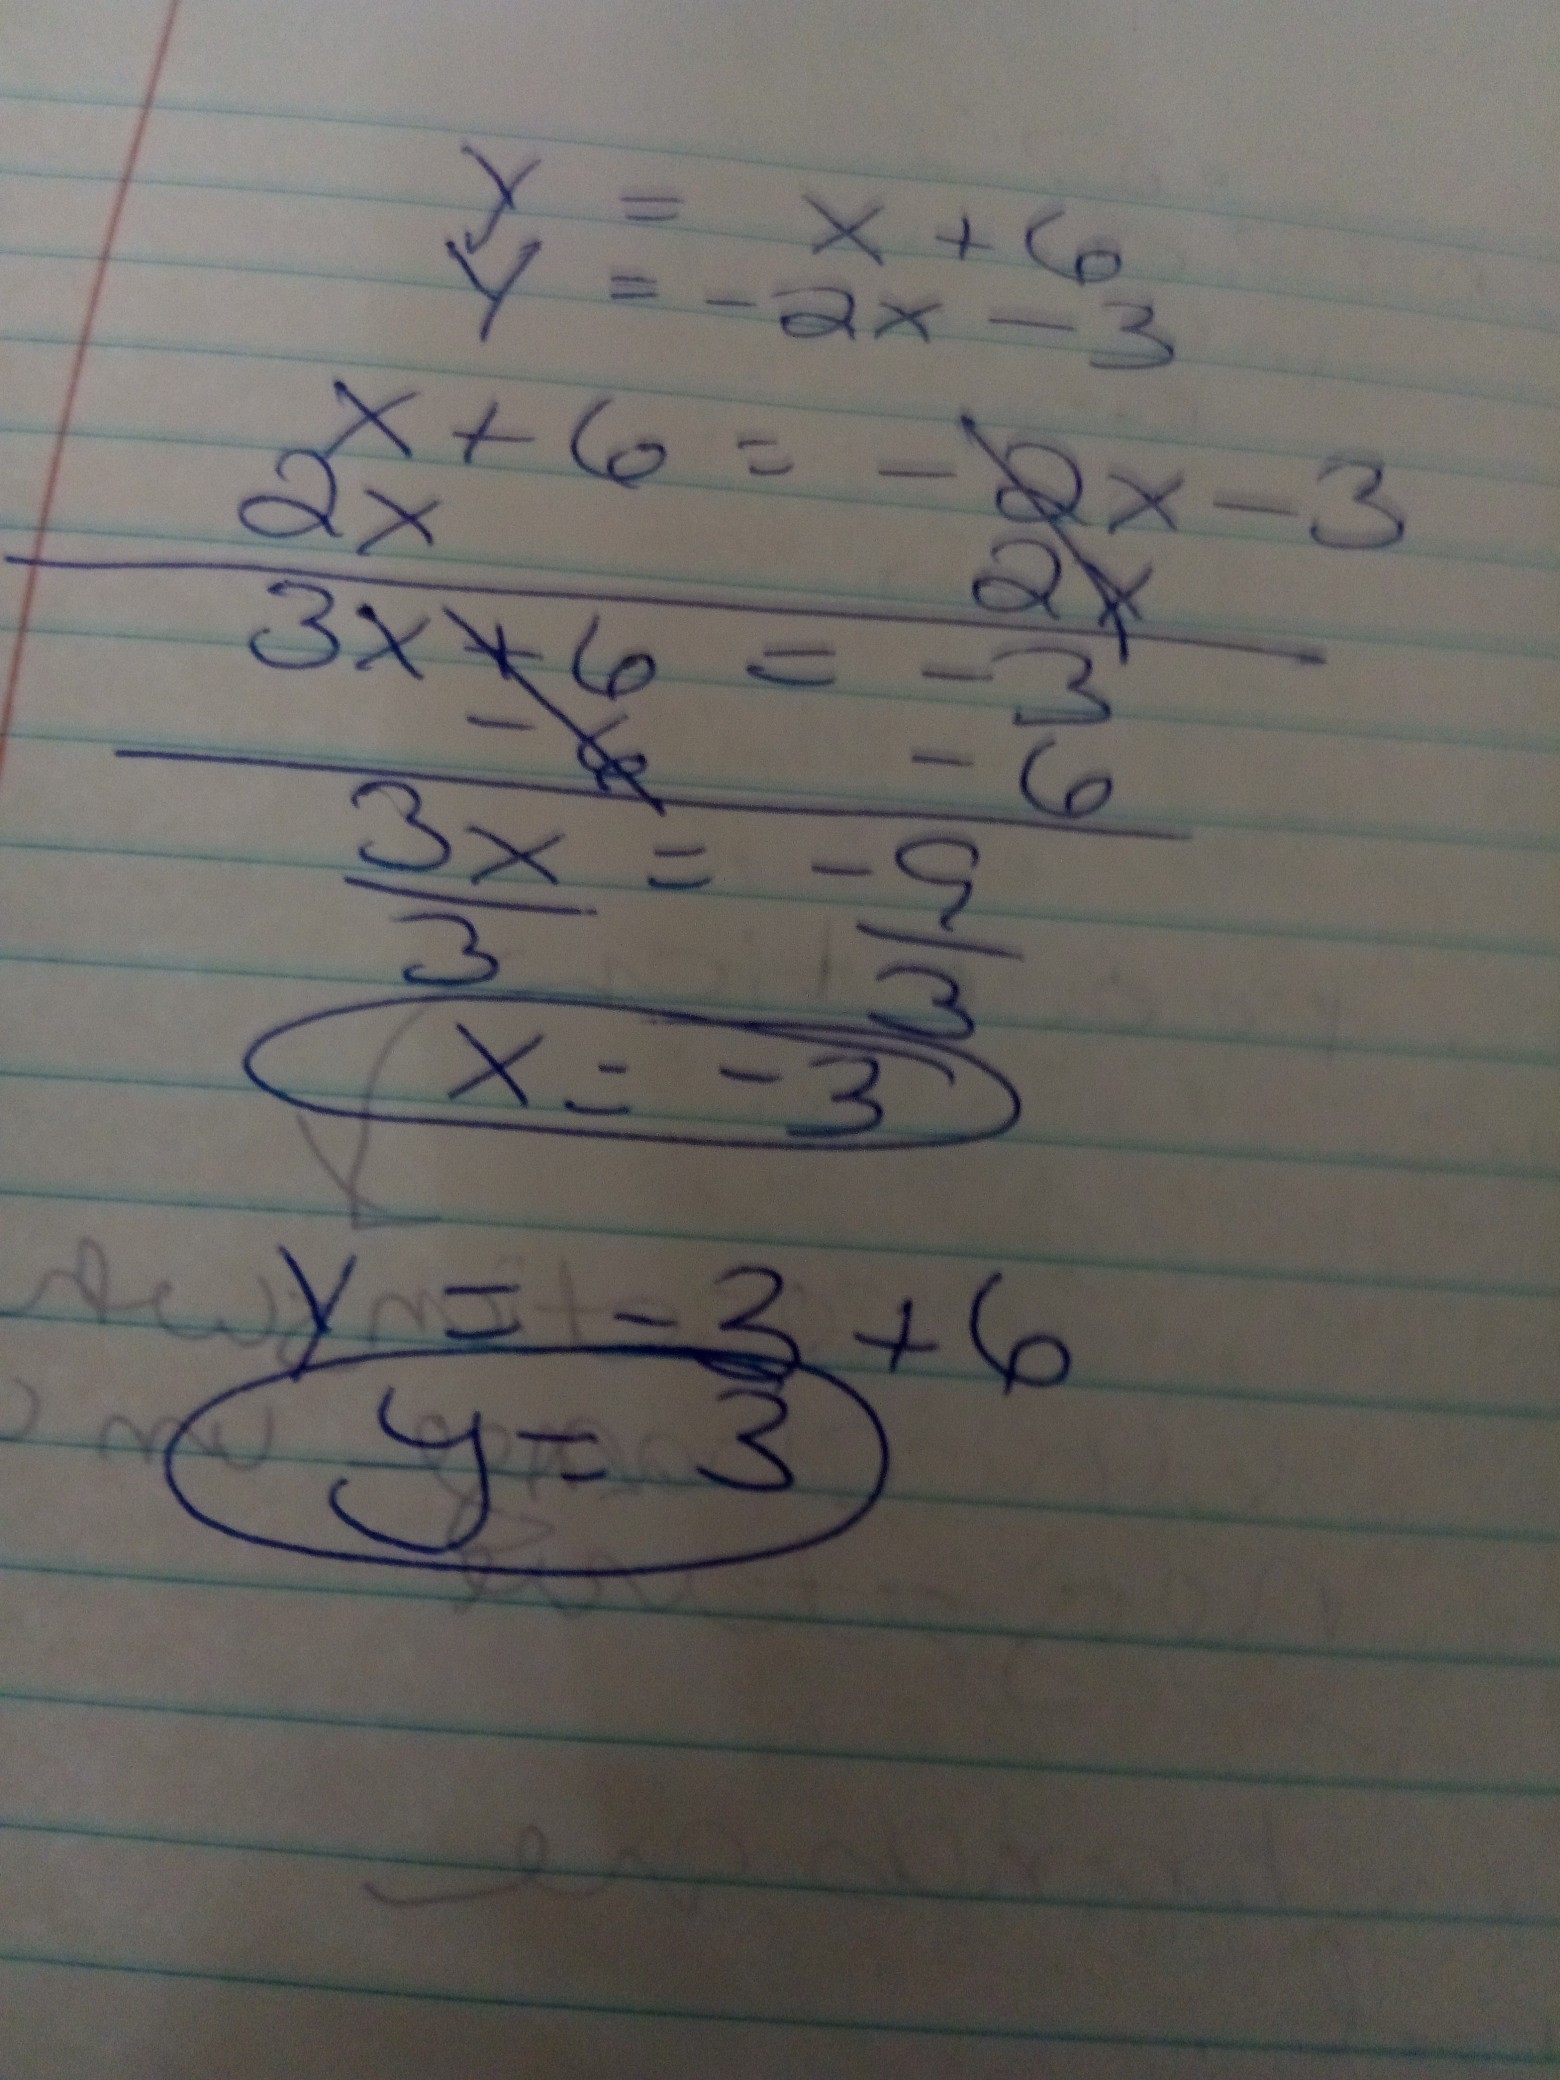 y = x + 6
y = -2x - 3
x + 6 = -2x - 3
2x 2x
3x + 6 = -3
- 6 - 6
3x = -9
3 3
x = -3
y = -3 + 6
y = 3